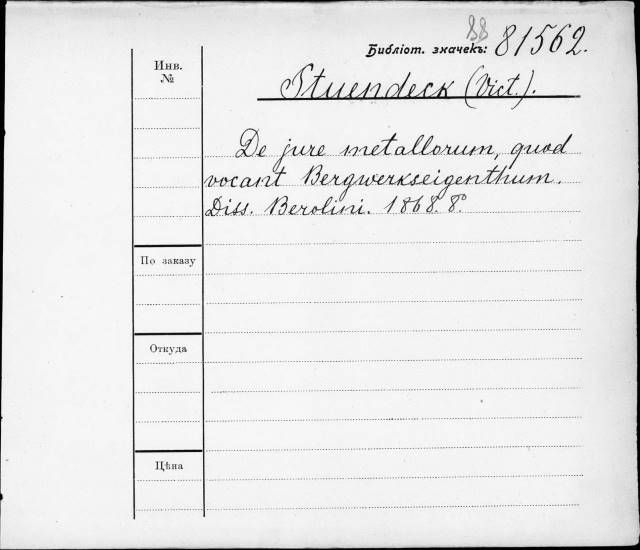 88
Библіот. значекъ: 81562.
Инв.
№
Stuendeck (Vict.).
De jure metallorum, quod
vocant Bergwerkseigenthum.
Diss. Berolini. 1868. 8°.
По заказу
Откуда
Цѣна